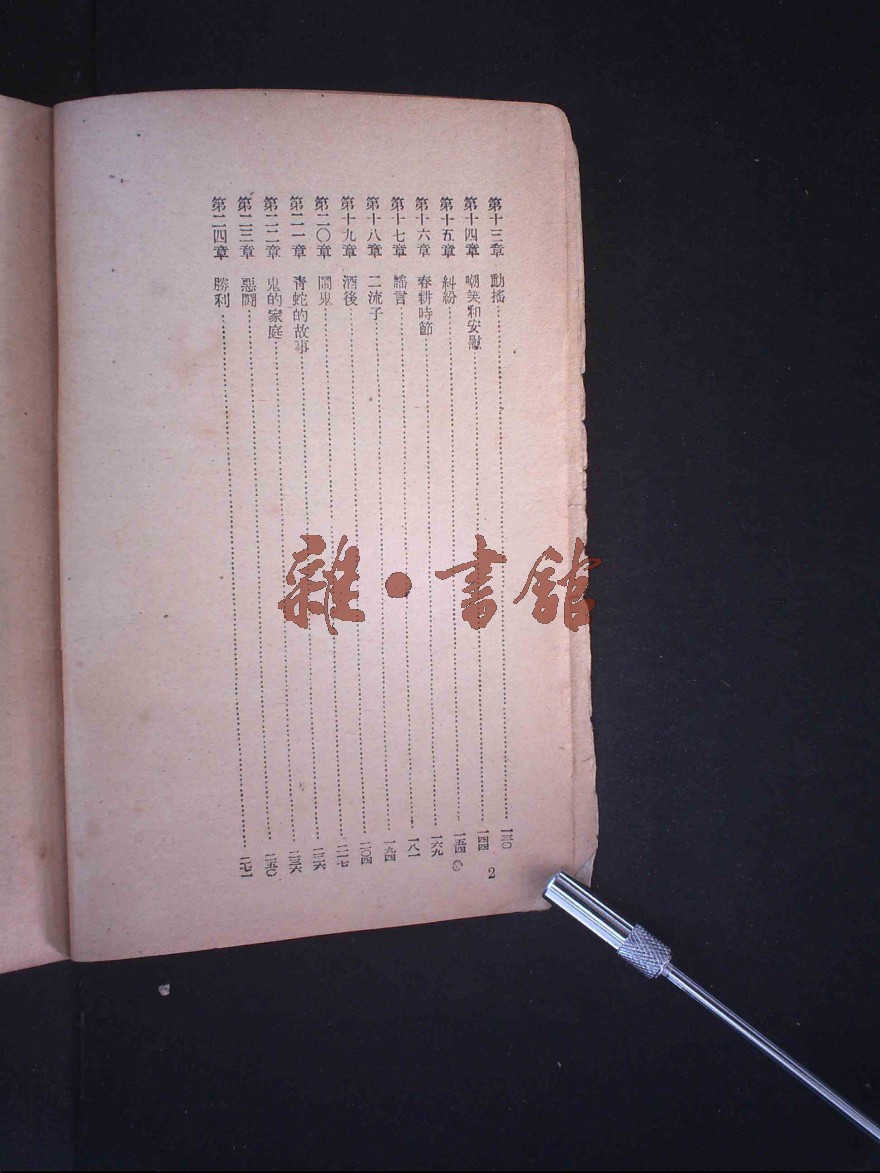 第十三章 動搖……一三〇
第十四章 嘲笑和安慰……一四四
第十五章 糾紛……一五四
第十六章 春耕時節……一六九
第十七章 謠言……一八一
第十八章 二流子……一九四
第十九章 酒後……二〇四
第二〇章 鬧鬼……二一七
第二一章 青蛇的故事……二二六
第二二章 鬼的家庭……二三六
第二三章 惡鬪……二五〇
第二四章 勝利……二七一
2
雜·書館